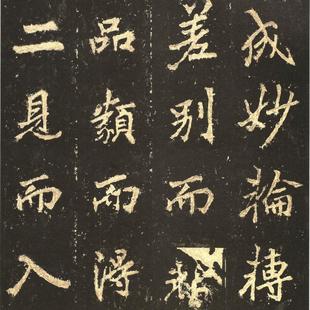 成妙輪轉
差別而
品類而得
二見而入